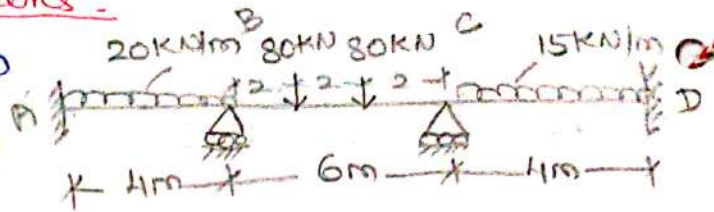 B C
20KN/m 80KN 80KN 15KN/m
2 2 2
A D
4m 6m 4m